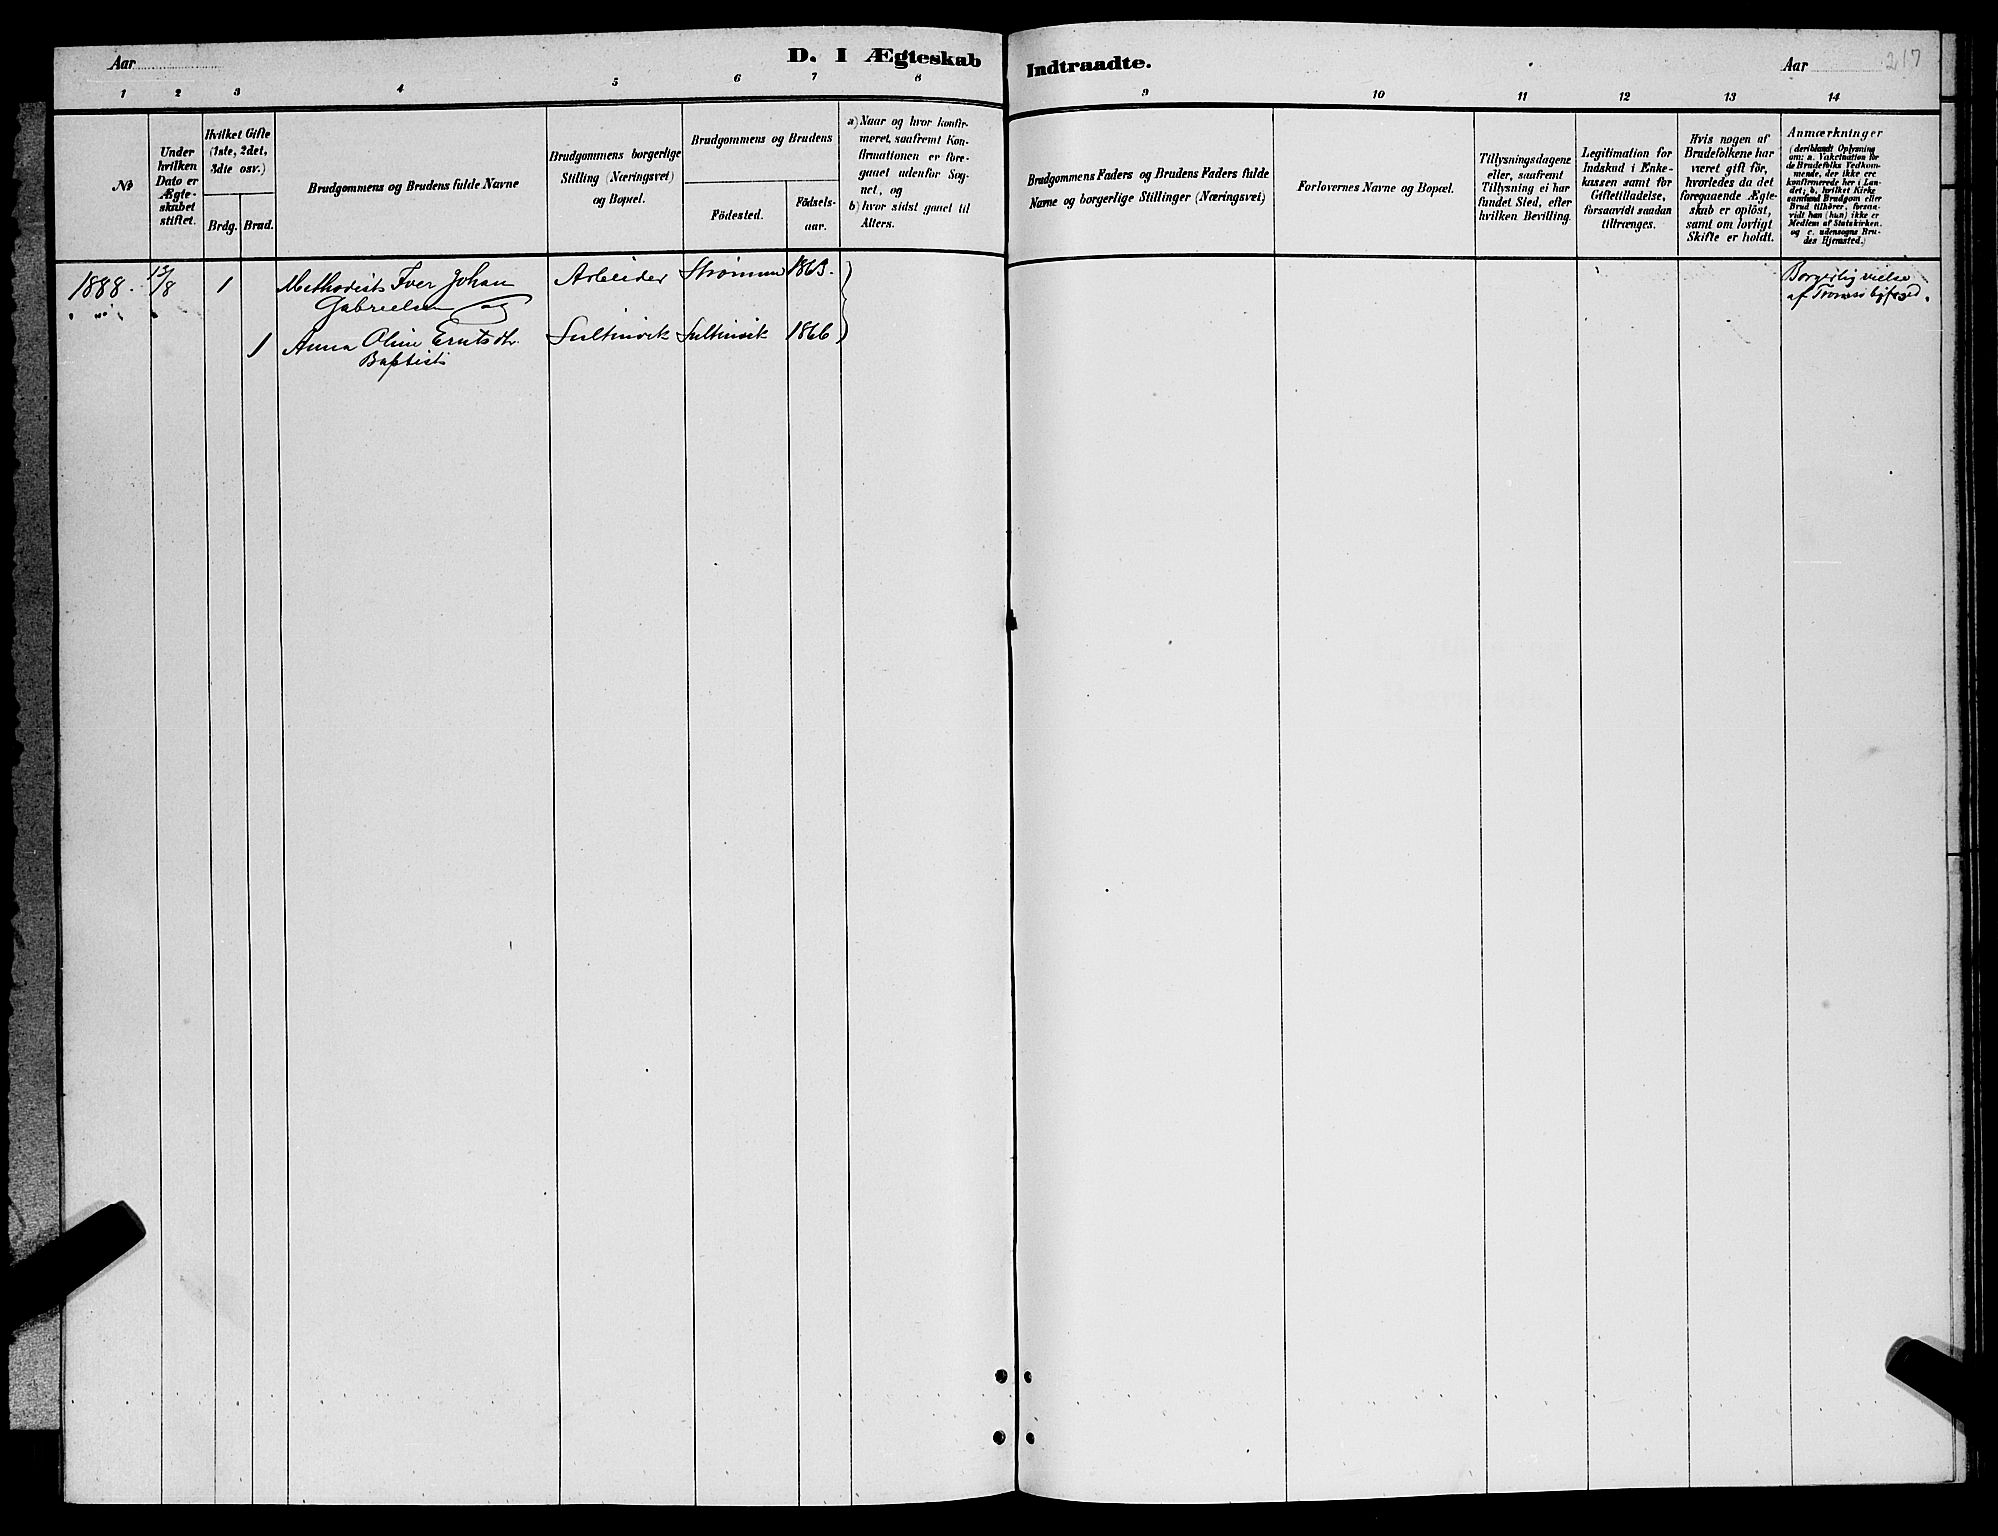 Aar
D. I Ægteskab
Indtraadte.
Aar
217
1 2 3 4 5 6 7 8
9 10 11 12 13 14
№
Under
hvilken
Dato er
Ægte-
skabet
stiftet.
Hvilket Gifte
(1ste, 2det,
3dte osv.)
Brdg. Brud.
Brudgommens og Brudens fulde Navne
Brudgommens borgerlige
Stilling (Næringsvei)
og Bopæl.
Brudgommens og Brudens
Födested.
Födsels-
aar.
a) Naar og hvor konfir-
meret, saafremt Kon-
firmationen er fore-
gaaet udenfor Sog-
net, og
b) hvor sidst gaaet til
Alters.
Brudgommens Faders og Brudens Faders fulde
Navne og borgerlige Stillinger (Næringsvei)
Forlovernes Navne og Bopæl.
Tillysningsdagene
eller, saafremt
Tillysning ei har
fundet Sted, efter
hvilken Bevilling.
Legitimation for
Indskud i Enke-
kassen samt for
Giftetilladelse,
forsaavidt saadan
tiltrænges.
Hvis nogen af
Brudefolkene har
været gift för,
hvorledes da det
foregaaende Ægte-
skab er oplöst,
samt om lovligt
Skifte er holdt.
Anmærkninger
(deriblandt Oplysning
om: a. Vakcination for
de Brudefolks Vedkom-
mende, der ikke ere
konfirmerede her i Lan-
det; b. hvilket Kirke
samfund Brudgom eller
Brud tilhörer, forsaa-
vidt han (hun) ikke er
Medlem af Statskirken,
og c. udensogns Bru-
des Hjemsted.)
1888. 1 Methodist Iver Johan Arbeider Strømmen 1863. Borgerlig vielse
Gabrielsen og af Tromsø byfoged.
1 Anna Oline Erntsdtr. Sultinvik Sultinvik 1866
Baptist